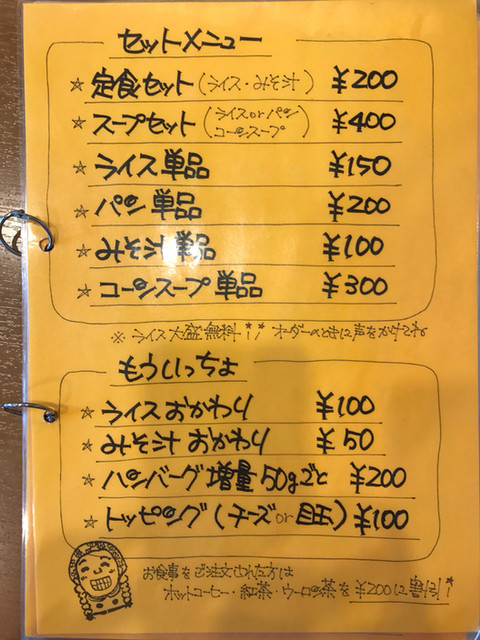 セットメニュー
☆ 定食セット(ライス・みそ汁) ¥200
☆ スープセット(ライスorパン コーンスープ) ¥400
☆ ライス単品 ¥150
☆ パン単品 ¥200
☆ みそ汁単品 ¥100
☆ コーンスープ単品 ¥300
※ライス大盛無料!! オーダーのときに声をかけてネ
もういっちょ
☆ ライスおかわり ¥100
☆ みそ汁おかわり ¥50
☆ ハンバーグ増量50gごと ¥200
☆ トッピング(チーズor目玉) ¥100
お食事をご注文された方は
ホットコーヒー・紅茶・ウーロン茶を¥200に割引!